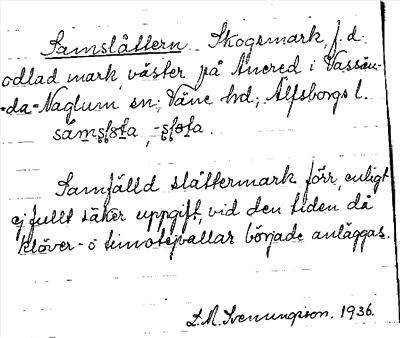 Samslåttern Skogsmark, f. d.
odlad mark, väster på Anered i Vassän-
da-Naglum sn; Väne hd; Älfsborgs l.
Samfälld slåttermark förr, enligt
ej fullt säker uppgift, vid den tiden då
klöver- o timotejvallar började anläggas.
D. M. Svenungsson. 1936.